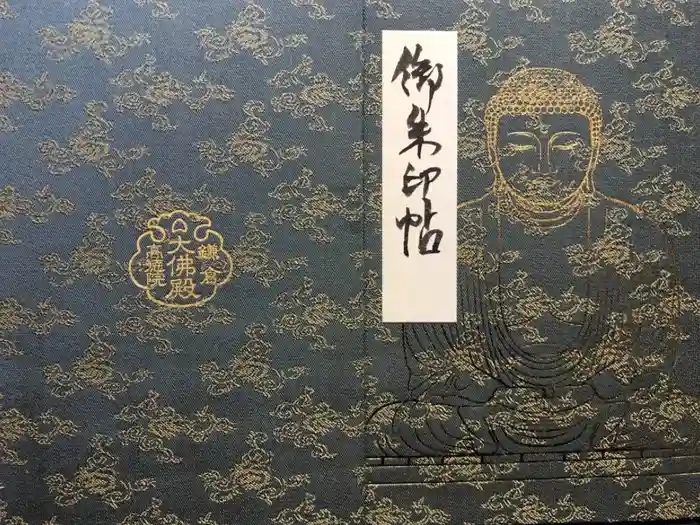 御朱印帖
鎌倉
大佛殿
高徳院